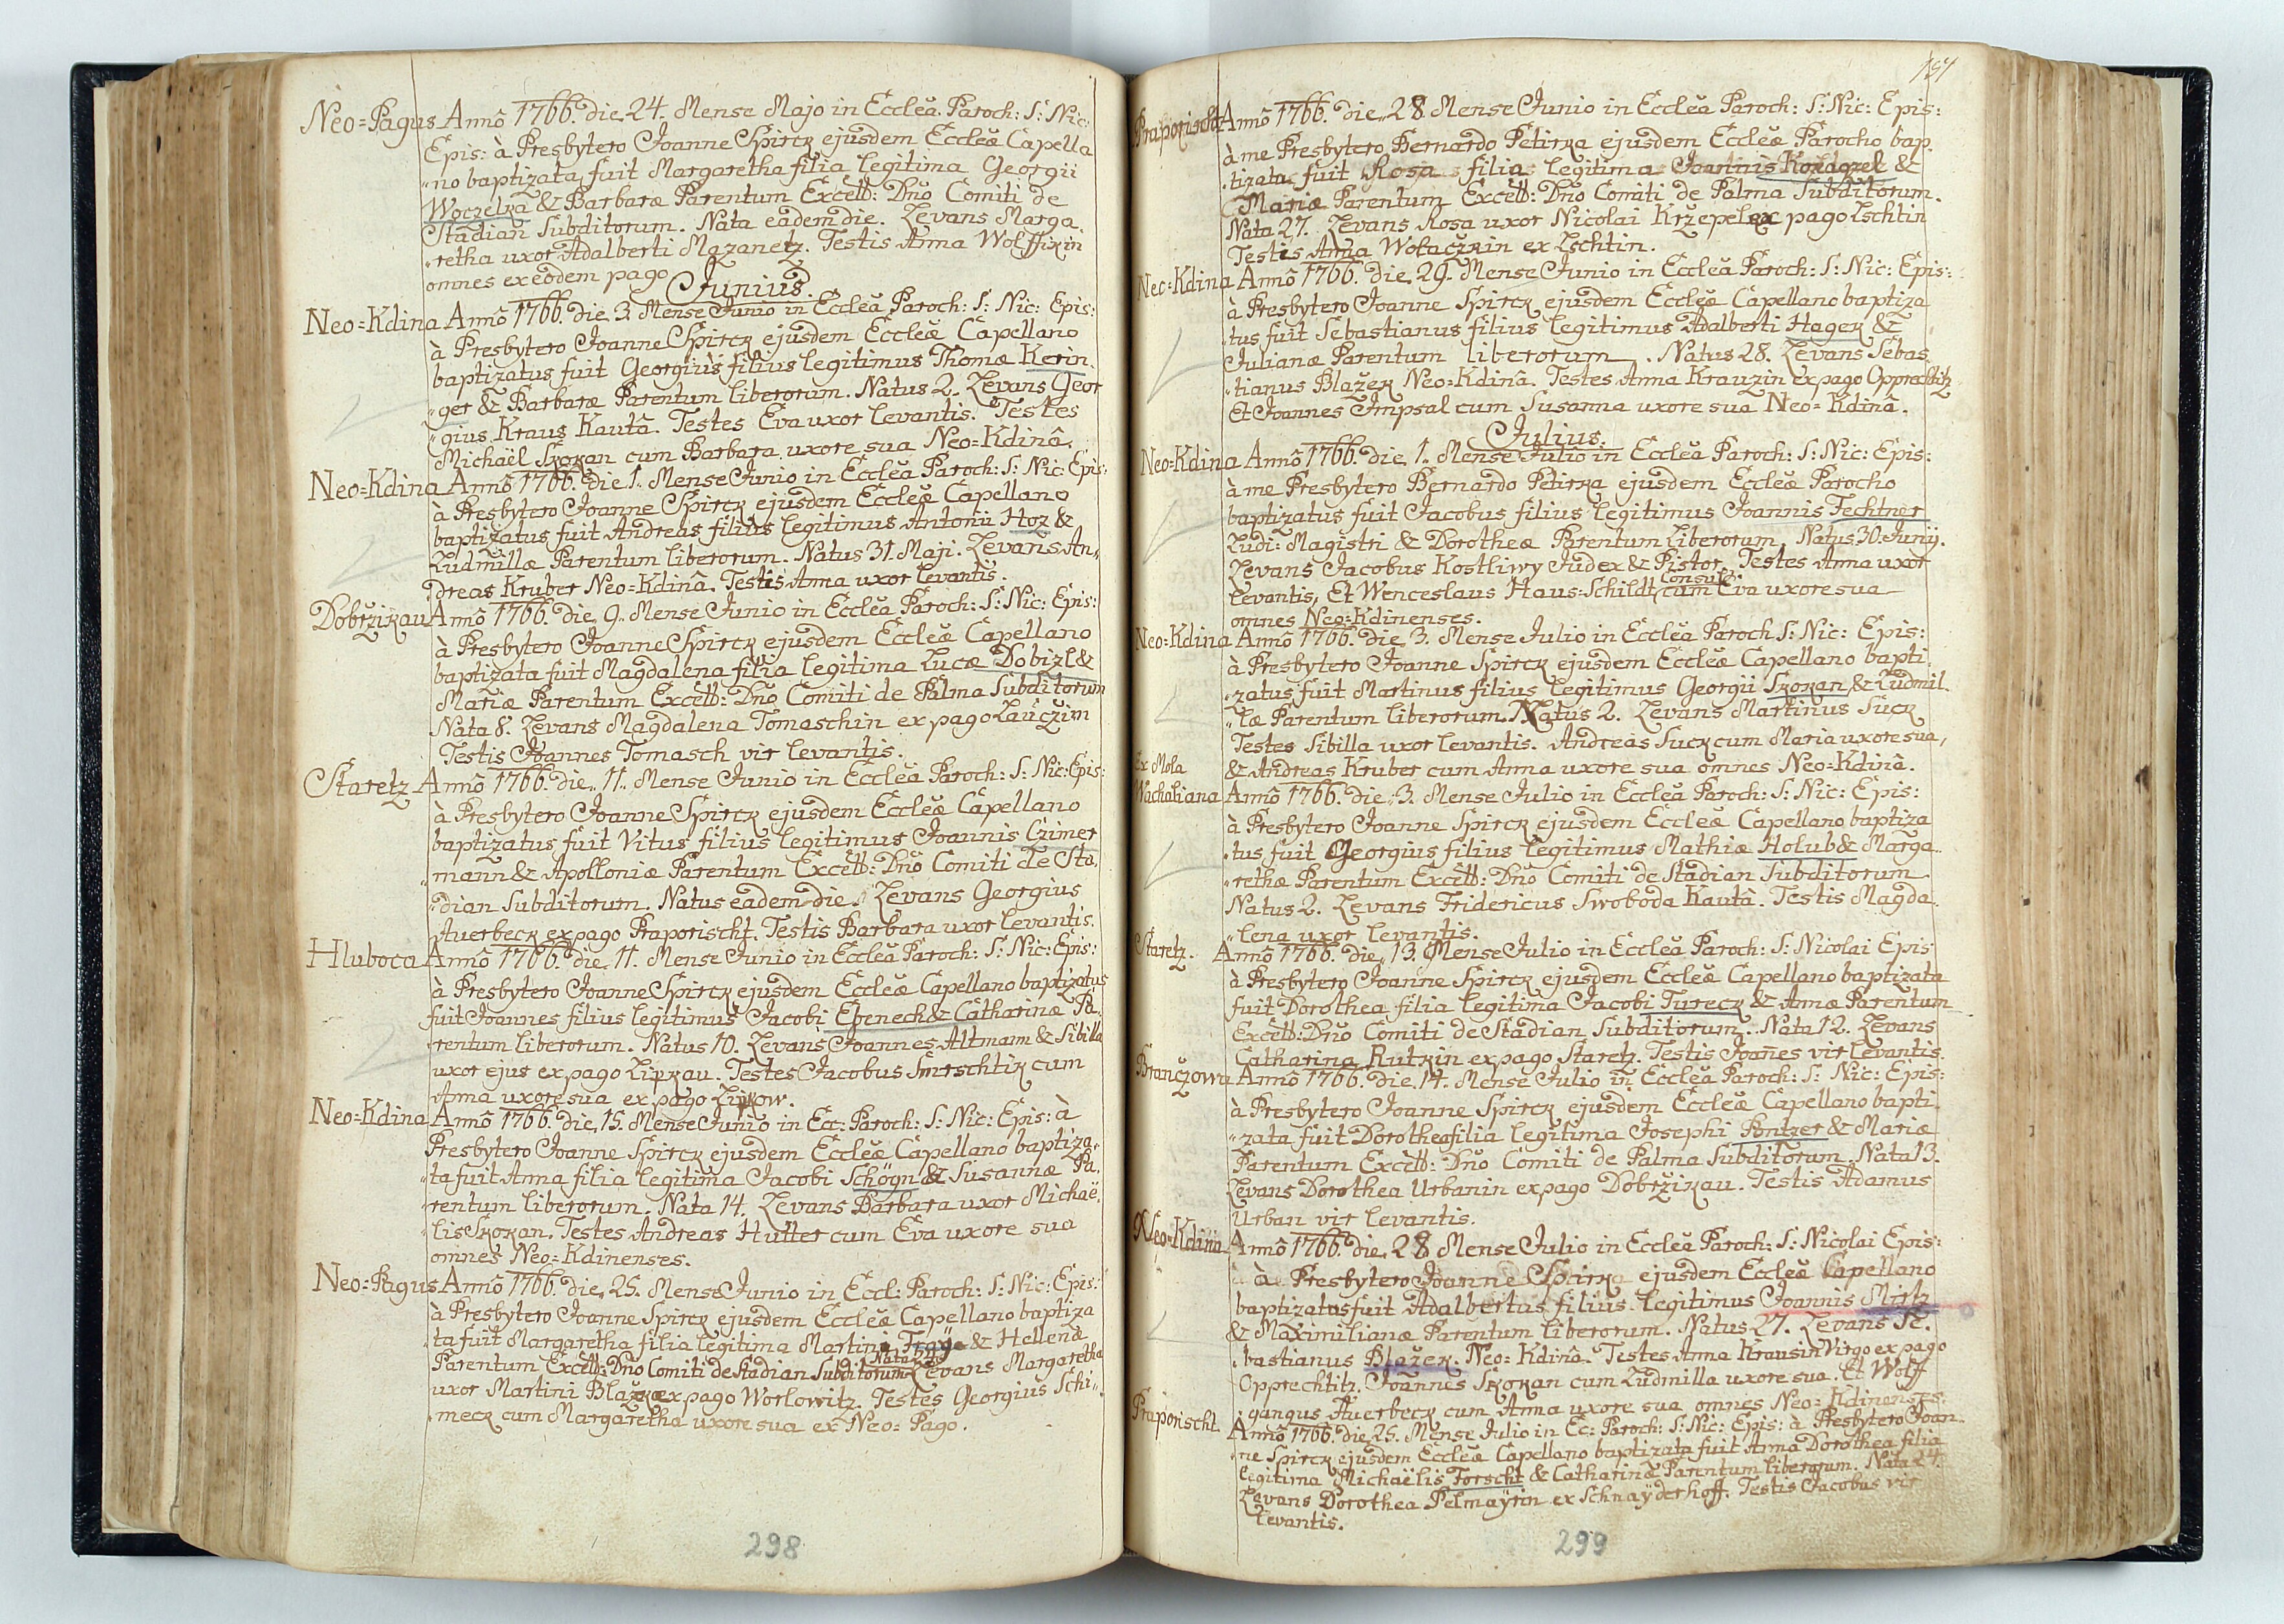 Neo=Pagus Annô 1766. die 24. Mense Majo in Eccleâ Paroch: S: Nic:
Epis: à Presbytero Joanne Spirck ejusdem Eccleæ Capella
"no baptizata fuit Margaretha filia legitima Georgii
Woczelka & Barbaræ Parentum Excell: Dño Comiti de
Stadian Subditorum. Nata eadem die. Levans Marga.
"retha uxor Adalberti Mazanetz. Testis Anna Wolffikin
omnes ex eodem pago
Junius.
Neo=Kdina Annô 1766. die 3. Mense Junio in Eccleâ Paroch: S: Nic: Epis:
à Presbytero Joanne Spirck ejusdem Eccleæ Capellano
baptizatus fuit Georgius filius legitimus Thomæ Kerin
"ger & Barbaræ Parentum liberorum. Natus 2. Levans Geor
"gius Kraus Kautâ. Testes Eva uxor levantis. Testes
Michaël Skokan cum Barbara uxore sua Neo=Kdinâ.
Neo=Kdina Annô 1766. die 1. Mense Junio in Eccleâ Paroch: S: Nic: Epis:
à Presbytero Joanne Spirck ejusdem Eccleæ Capellano
baptizatus fuit Andreas filius legitimus Antonii Hoz &
Ludmillæ Parentum liberorum. Natus 31. Maji. Levans An,,
dreas Kruber Neo=Kdinâ. Testis Anna uxor levantis.
Dobržikau Annô 1766. die, 9. Mense Junio in Eccleâ Paroch: S: Nic: Epis:
à Presbytero Joanne Spirck ejusdem Eccleæ Capellano
baptizata fuit Magdalena filia legitima Lucæ Dobizl &
Mariæ Parentum Excell: Dño Comiti de Palma Subditorum
Nata 8. Levans Magdalena Tomaschin ex pago Laučzim
Testis Joannes Tomasch vir levantis.
Staretz Annô 1766. die,, 11,, Mense Junio in Eccleâ Paroch: S: Nic: Epis:
à Presbytero Joanne Spirck ejusdem Eccleæ Capellano
baptizatus fuit Vitus filius legitimus Joannis Czimer
"mann & Apolloniæ Parentum Excell: Dño Comiti de Sta.
"dian Subditorum. Natus eadem die. Levans Georgius
Auerbeck ex pago Praporischt. Testis Barbara uxor levantis.
Hluboca Annô 1766. die, 11. Mense Junio in Eccleâ Paroch: S: Nic: Epis:
à Presbytero Joanne Spirck ejusdem Eccleæ Capellano baptizatus
fuit Joannes filius legitimus Jacobi Ebenech & Catharinæ Pa.
rentum liberorum. Natus 10. Levans Joannes Altmann & Sibilla
uxor ejus ex pago Lipkau. Testes Jacobus Smrschtik cum
Anna uxore sua ex pago Lipkow.
Neo=Kdina Annô 1766. die, 15. Mense Junio in Ecc: Paroch: S: Nic: Epis: à
Presbytero Joanne Spirck ejusdem Eccleæ Capellano baptiza,
"ta fuit Anna filia legitima Jacobi Schögn & Susannæ Pa.
rentum liberorum. Nata 14. Levans Barbara uxor Michaë.
"lis Skokan. Testes Andreas Hutter cum Eva uxore sua
omnes Neo=Kdinenses.
Neo=Pagus Annô 1766. die, 25. Mense Junio in Eccl: Paroch: S: Nic: Epis:
à Presbytero Joanne Spirck ejusdem Eccleæ Capellano baptiza
ta fuit Margaretha filia legitima Martini & Hellenæ
Parentum Excell: Dño Comiti de Stadian Subditorum Nata Levans Margaretha
uxor Martini Blažek ex pago Worlowitz. Testes Georgius Schi,,
"meck cum Margaretha uxore sua ex Neo=Pago.
298
184
Praporischt Annô 1766. die,, 28 Mense Junio in Eccleâ Paroch: S: Nic: Epis:
à me Presbytero Bernardo Petirka ejusdem Eccleæ Parocho bap.
"tizata fuit Rosa filia legitima Joannis &
Mariæ Parentum Excell: Dño Comiti de Palma Subditorum.
Nata 27. Levans Rosa uxor Nicolai Kržepel ex pago Lschtin
Testis Anna Wolaczkin ex Lschtin.
Neo=Kdina Annô 1766. die, 29. Mense Junio in Eccleâ Paroch: S: Nic: Epis:
à Presbytero Joanne Spirck ejusdem Eccleæ Capellano baptiza
"tus fuit Sebastianus filius legitimus Adalberti Hagek &
Julianæ Parentum liberorum. Natus 28. Levans Sebas
"tianus Blažek Neo=Kdinâ. Testes Anna Krauzin ex pago Opprechtitz
Et Joannes Impsal cum Susanna uxore sua Neo=Kdinâ.
Julius.
Neo=Kdina Annô 1766. die, 1. Mense Julio in Eccleâ Paroch: S: Nic: Epis:
à me Presbytero Bernardo Petirka ejusdem Eccleæ Parocho
baptizatus fuit Jacobus filius legitimus Joannis Fechtner
Ludi: Magistri & Dorotheæ Parentum Liberorum. Natus 30. Junij.
Levans Jacobus Kostliwy Judex & Pistor, Testes Anna uxor
levantis, Et Wenceslaus Haus=Schildt Consul cum Eva uxore sua
omnes Neo=Kdinenses.
Neo=Kdina Annô 1766. die 3. Mense Julio in Eccleâ Paroch S: Nic: Epis:
à Presbytero Joanne Spirck ejusdem Eccleæ Capellano bapti.
"zatus fuit Martinus filius legitimus Georgii Skokan & Ludmil.
"læ Parentum liberorum. Natus 2. Levans Martinus Suck
Testes Sibilla uxor levantis. Andreas Suck cum Maria uxore sua,
& Andreas Kruber cum Anna uxore sua omnes Neo=Kdinâ.
Ex Mola
Wachaliana Annô 1766. die,, 3. Mense Julio in Eccleâ Paroch: S: Nic: Epis:
à Presbytero Joanne Spirck ejusdem Eccleæ Capellano baptiza
"tus fuit Georgius filius legitimus Mathiæ Holub & Marga,,
"rethæ Parentum Excell: Dño Comiti de Stadian Subditorum
Natus 2. Levans Fridericus Swoboda Kautâ. Testis Magda.
"lena uxor levantis.
Staretz. Annô 1766. die, 13. Mense Julio in Eccleâ Paroch: S: Nicolai Epis
à Presbytero Joanne Spirck ejusdem Eccleæ Capellano baptizata
fuit Dorothea filia legitima Jacobi Tureck & Annæ Parentum
Excell: Dño Comiti de Stadian Subditorum. Nata 12. Levans
Catharina Rutkin ex pago Staretz. Testis Joañes vir levantis.
Brančzowa Annô 1766. die, 14. Mense Julio in Eccleâ Paroch: S: Nic: Epis:
à Presbytero Joanne Spirck ejusdem Eccleæ Capellano bapti.
"zata fuit Dorothea filia legitima Josephi Pontzer & Mariæ
Parentum Excell: Dño Comiti de Palma Subditorum. Nata 13.
Levans Dorothea Urbanin ex pago Dobržikau. Testis Adamus
Urban vir levantis.
Neo=Kdina Annô 1766. die, 28 Mense Julio in Eccleâ Paroch: S: Nicolai Epis:
à Presbytero Joanne Spirck ejusdem Eccleæ Capellano
baptizatus fuit Adalbertus filius legitimus Joannis Mirtz
& Maximilianæ Parentum liberorum. Natus 27. Levans Se.
"bastianus Blažek. Neo=Kdinâ. Testes Anna Krausin Virgo ex pago
Opprechtitz. Joannes Skokan cum Ludmilla uxore sua. Et Wolff
"gangus Auerbeck cum Anna uxore sua omnes Neo=Kdinenses.
Praporischt. Annô 1766. die, 25. Mense Julio in Ec: Paroch: S: Nic: Epis: à Presbytero Joan.
"ne Spirck ejusdem Eccleæ Capellano baptizata fuit Anna Dorothea filia
legitima Michaëlis Forscht & Catharinæ Parentum liberorum. Nata 24.
Levans Dorothea Pelmaÿrin ex Schnaÿderhoff. Testis Jacobus vir
levantis.
299